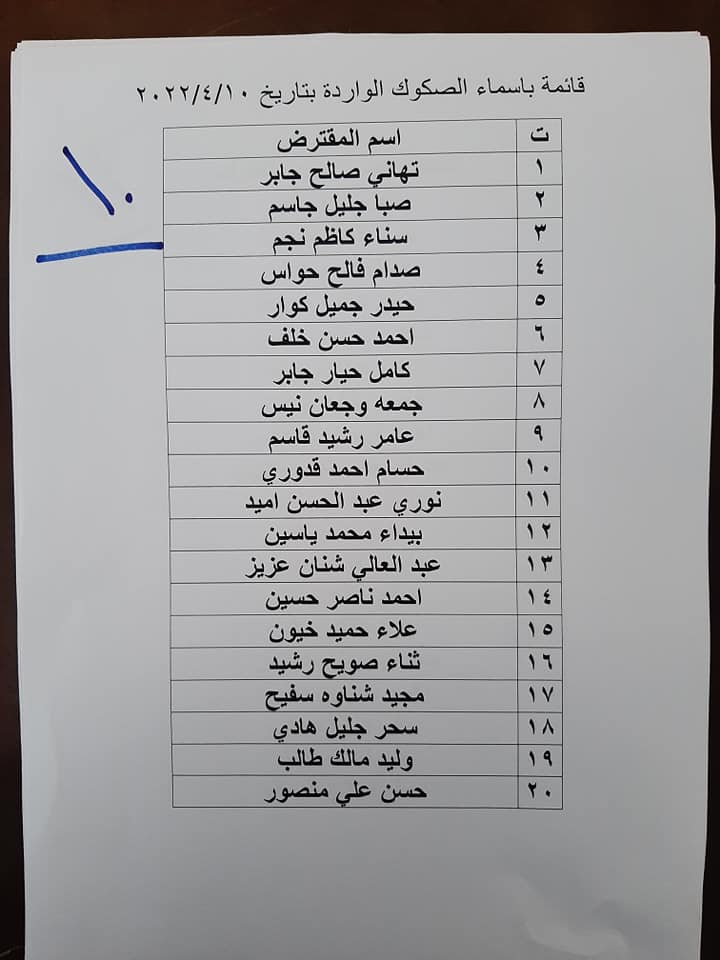 قائمة باسماء الصكوك الواردة بتاريخ ٢٠٢٢/٤/١٠
١٠
ت اسم المقترض
١ تهاني صالح جابر
٢ صبا جليل جاسم
٣ سناء كاظم نجم
٤ صدام فالح حواس
٥ حيدر جميل كوار
٦ احمد حسن خلف
٧ كامل حيار جابر
٨ جمعه وجعان نيس
٩ عامر رشيد قاسم
١٠ حسام احمد قدوري
١١ نوري عبد الحسن اميد
١٢ بيداء محمد ياسين
١٣ عبد العالي شنان عزيز
١٤ احمد ناصر حسين
١٥ علاء حميد خيون
١٦ ثناء صويح رشيد
١٧ مجيد شناوه سفيح
١٨ سحر جليل هادي
١٩ وليد مالك طالب
٢٠ حسن علي منصور